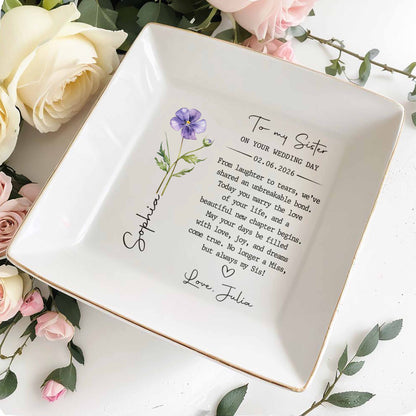 To my Sister
ON YOUR WEDDING DAY
02.06.2026
From laughter to tears, we've
shared an unbreakable bond.
Today you marry the love
of your life, and a
beautiful new chapter begins.
May your days be filled
with love, joy, and dreams
come true. No longer a Miss,
but always my Sis!
Love, Julia
Sophia